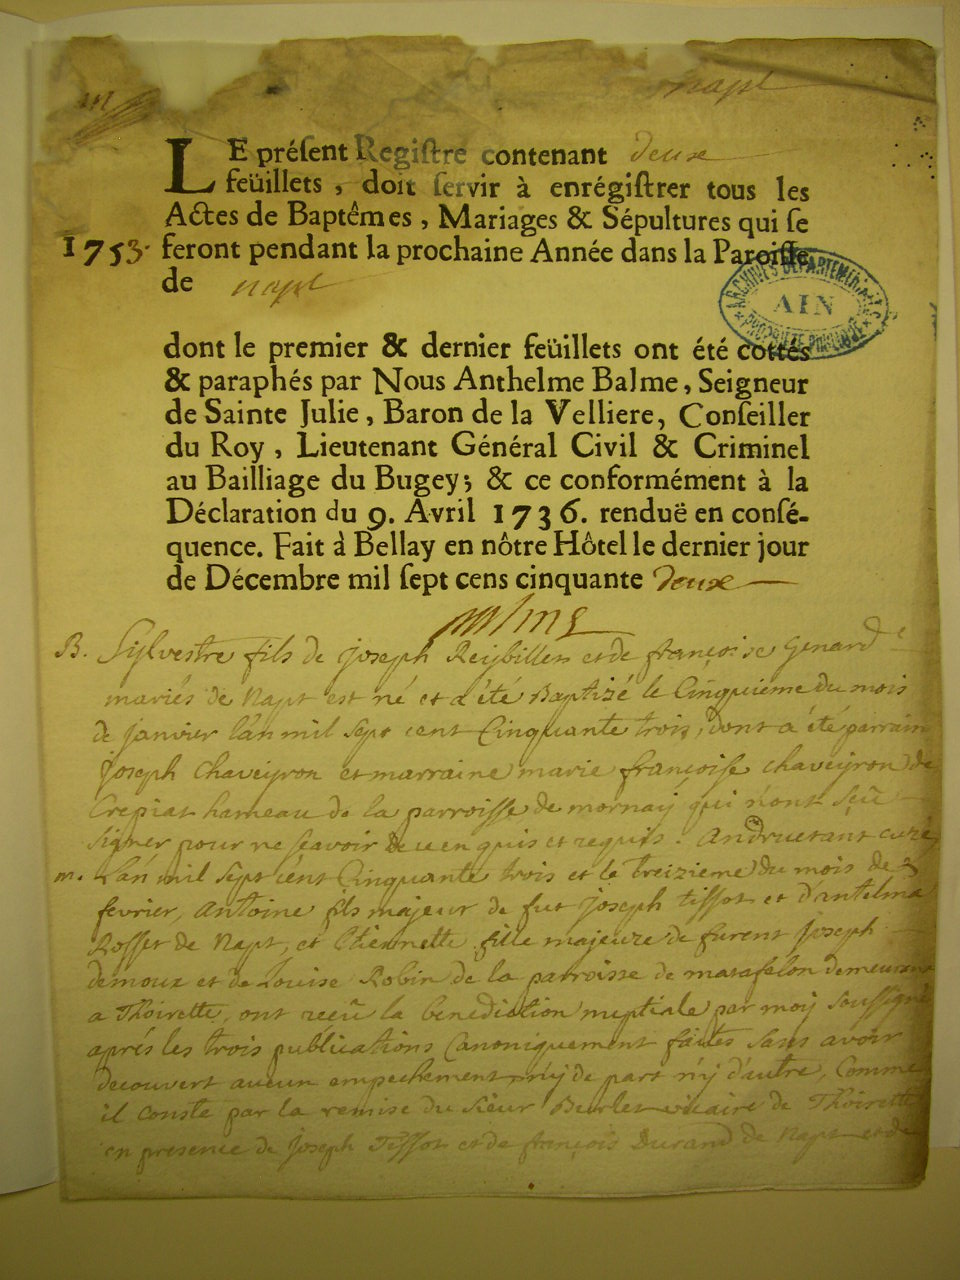 napt
LE préſent Regiſtre contenant deux
feüillets, doit ſervir à enrégiſtrer tous les
Actes de Baptêmes, Mariages & Sépultures qui ſe
1753. feront pendant la prochaine Année dans la Paroiſſe
de napt
ARCHIVES DEPARTEMENTALES
AIN
PROPRIÉTÉ PUBLIQUE
dont le premier & dernier feüillets ont été cottés
& paraphés par Nous Anthelme Balme, Seigneur
de Sainte Julie, Baron de la Velliere, Conſeiller
du Roy, Lieutenant Général Civil & Criminel
au Bailliage du Bugey; & ce conformément à la
Déclaration du 9. Avril 1736. renduë en conſé-
quence. Fait à Bellay en nôtre Hôtel le dernier jour
de Décembre mil ſept cens cinquante deux
B. Sylvestre fils de joseph Reybiller et de françoise Genard
mariés de Napt est né et a été Baptizé le Cinquieme du mois
de janvier l'an mil sept cent Cinquante trois, dont a été parrain
joseph Chaveyron et marraine marie françoise chaveyron de
Crepiat hameau de la parroisse de mornay qui n'ont sçu
signer pour ne sçavoir de ce enquis et requis. Andruetant curé
m. L'an mil sept cent Cinquante trois et le treizieme du mois de
fevrier, Antoine fils majeur de fut joseph tissot et d'antelma
Rosset de Napt, et Etiennette fille majeure de furent joseph
demoux et de Louise Robin de la parroisse de matafelon demeurant
a Thoirette, ont reçû la benediction nuptiale par moy soussigné
aprés les trois publications Canoniquement faites sans avoir
decouvert aucun empechement ny de part ny d'autre, Comme
il conste par la remise du sieur Burlet vicaire de Thoirette
en presence de joseph Tissot et de françois Durand de Napt et de